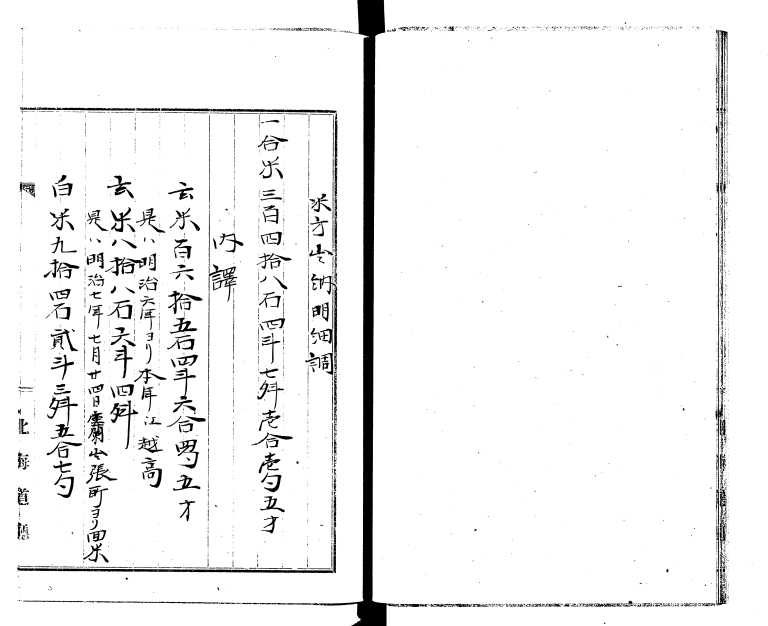 米方出納明細調
一合米三百四拾八石四斗七舛壱合壱勺五才
内譯
玄米百六拾五石四斗六合四勺五才
是ハ明治六年ヨリ本年江越高
玄米八拾八石六斗四舛
是ハ明治七年七月廿四日室蘭出張所ヨリ回米
白米九拾四石貳斗三舛五合七勺
北海道廳